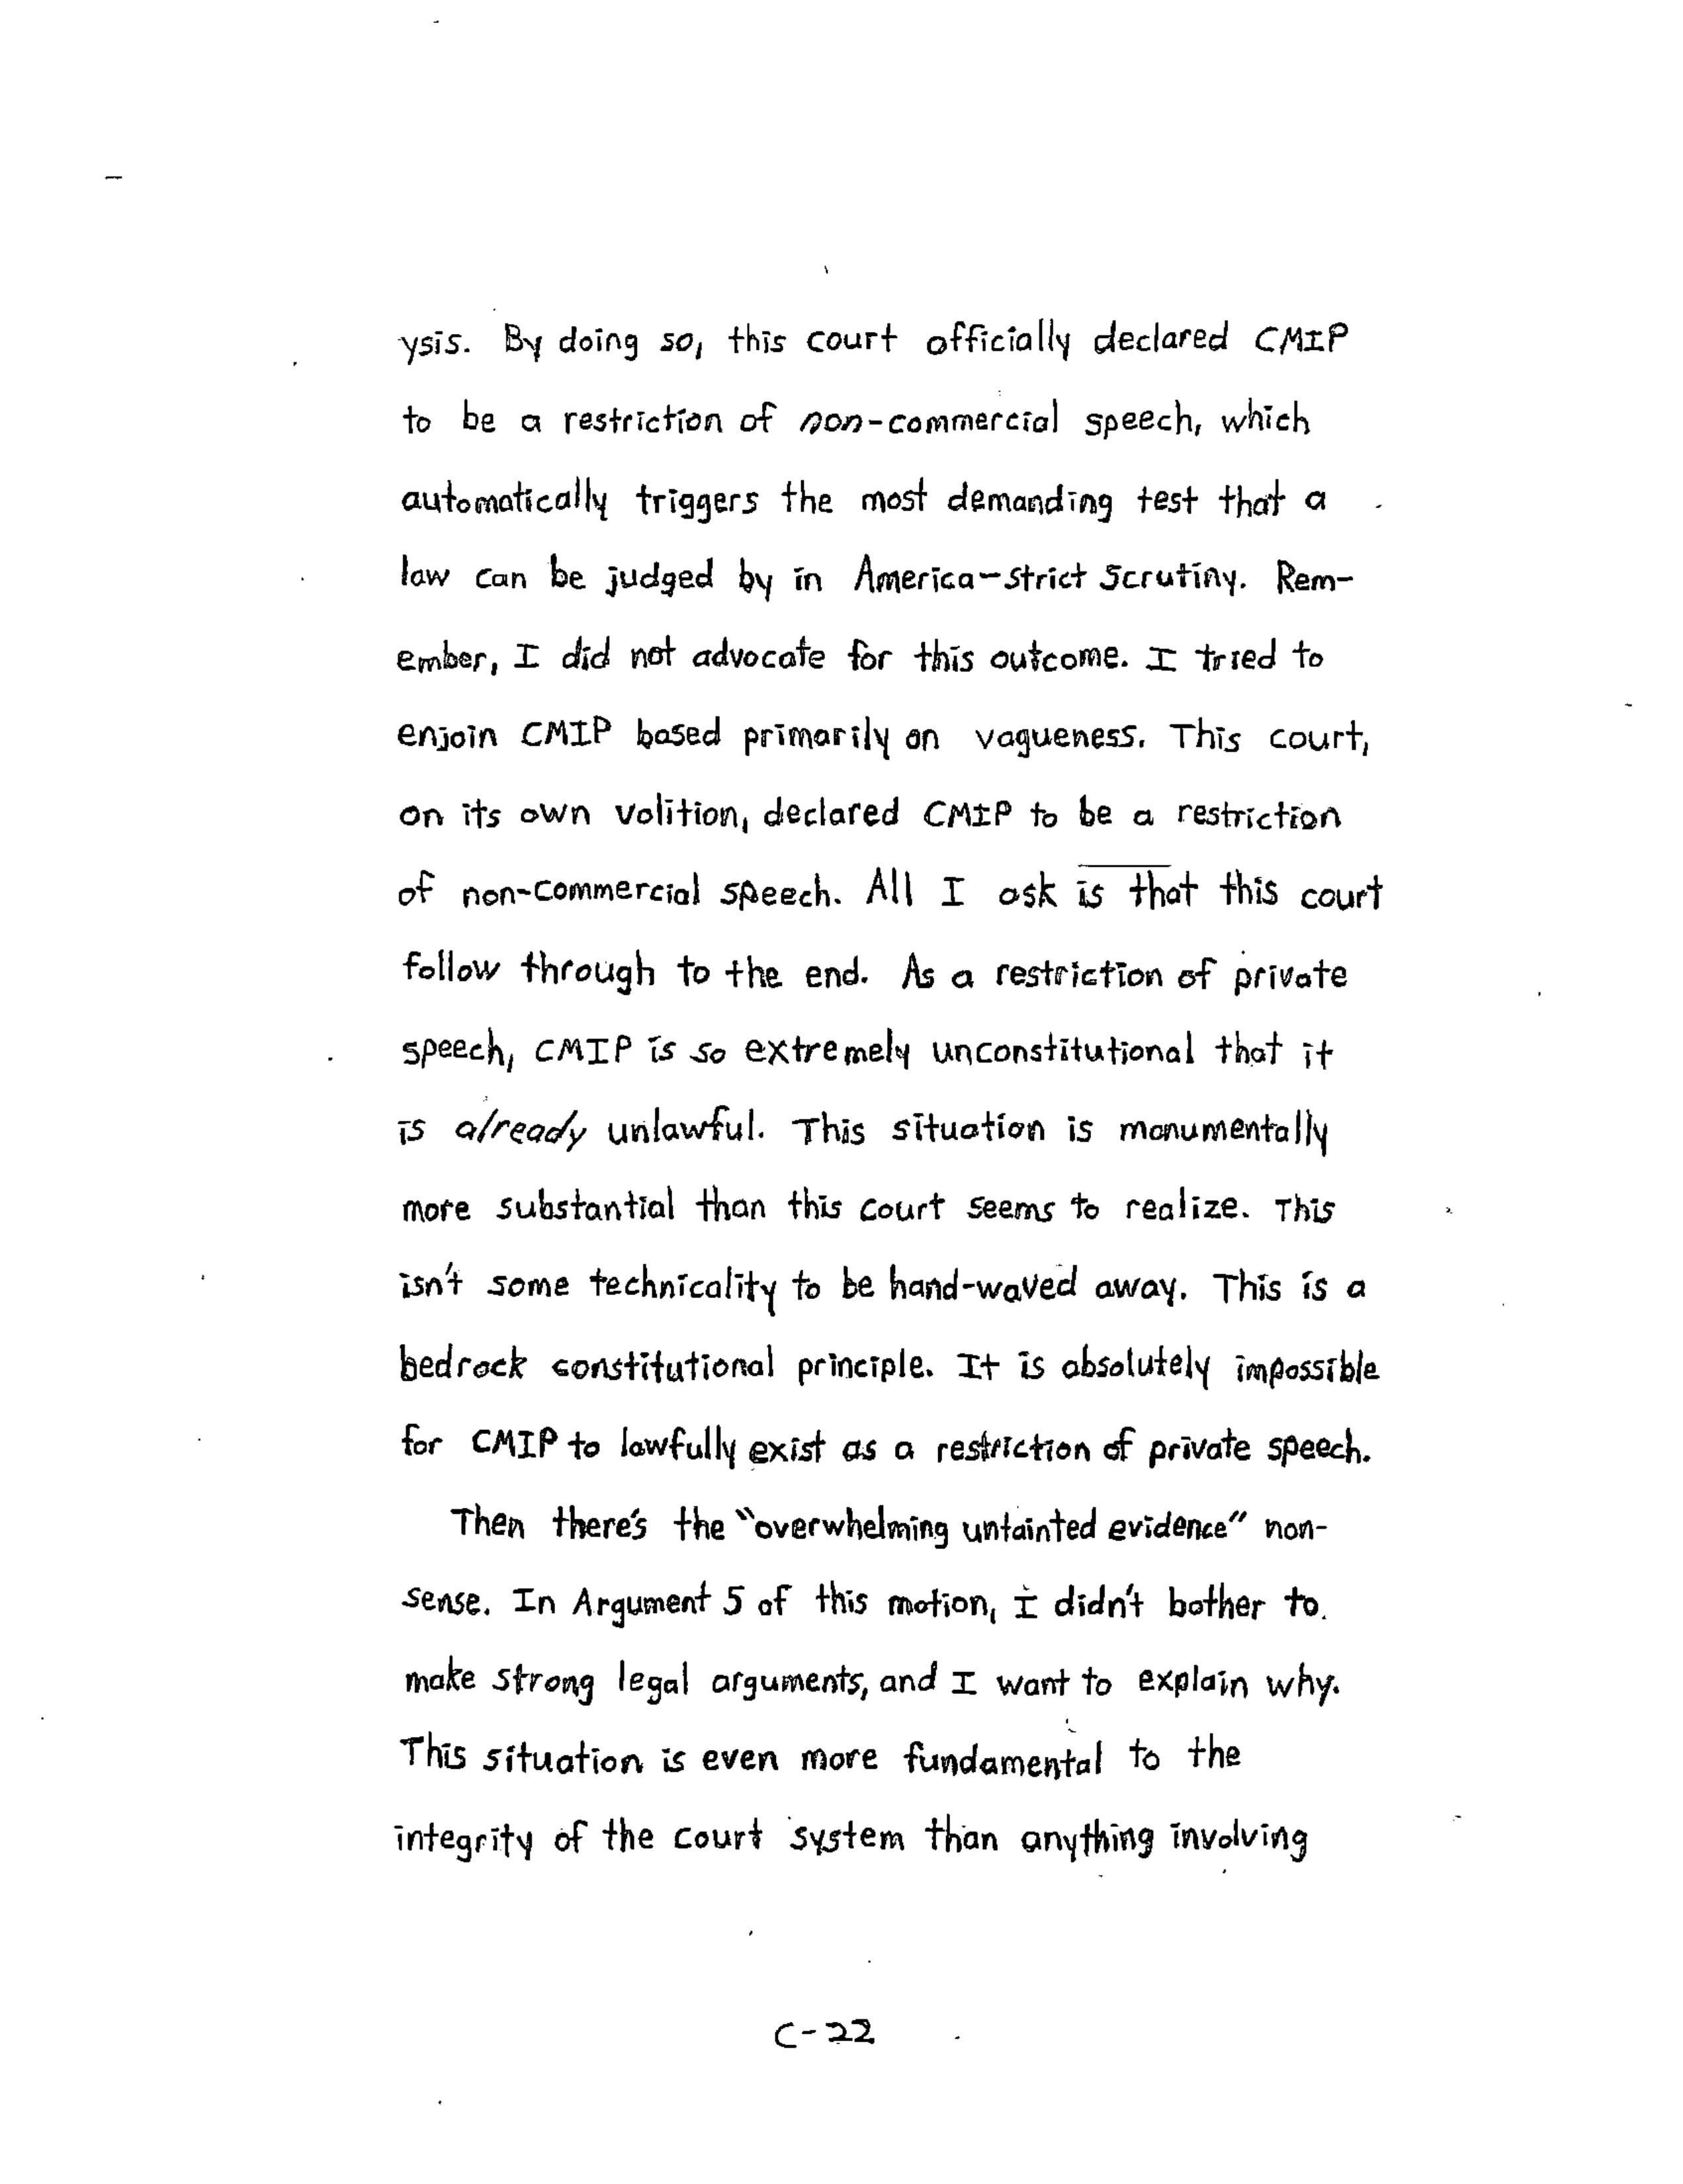 ysis. By doing so, this court officially declared CMIP
to be a restriction of non-commercial speech, which
automatically triggers the most demanding test that a
law can be judged by in America-strict scrutiny. Rem-
ember, I did not advocate for this outcome. I tried to
enjoin CMIP based primarily on vagueness. This court,
on its own volition, declared CMIP to be a restriction
of non-commercial speech. All I ask is that this court
follow through to the end. As a restriction of private
speech, CMIP is so extremely unconstitutional that it
is already unlawful. This situation is monumentally
more substantial than this court seems to realize. This
isn't some technicality to be hand-waved away. This is a
bedrock constitutional principle. It is absolutely impossible
for CMIP to lawfully exist as a restriction of private speech.
Then there's the "overwhelming untainted evidence" non-
sense. In Argument 5 of this motion, I didn't bother to
make strong legal arguments, and I want to explain why.
This situation is even more fundamental to the
integrity of the court system than anything involving
C-22